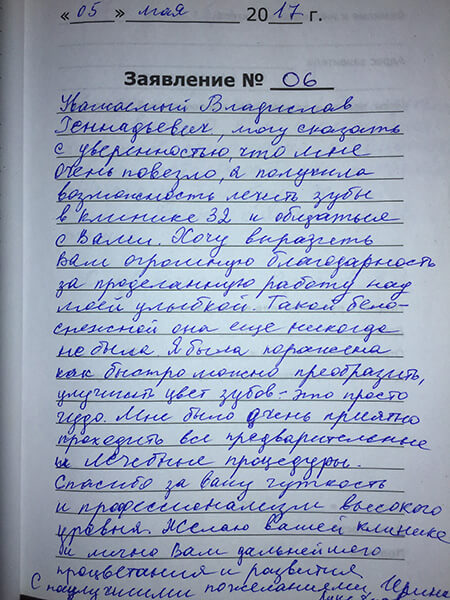 « 05 » мая 2017 г.
Заявление № 06
Уважаемый Владислав
Геннадьевич, могу сказать
с уверенностью, что мне
очень повезло, я получила
возможность лечить зубы
в клинике 32 и общаться
с Вами. Хочу выразить
Вам огромную благодарность
за проделанную работу над
моей улыбкой. Такой бело-
снежной она еще никогда
не была. Я была поражена
как быстро можно преобразить,
улучшить цвет зубов - это просто
чудо. Мне было очень приятно
проходить все предварительные
и лечебные процедуры.
Спасибо за вашу чуткость
и профессионализм высокого
уровня. Желаю вашей клинике
и лично Вам дальнейшего
процветания и развития
С наилучшими пожеланиями, Ирина